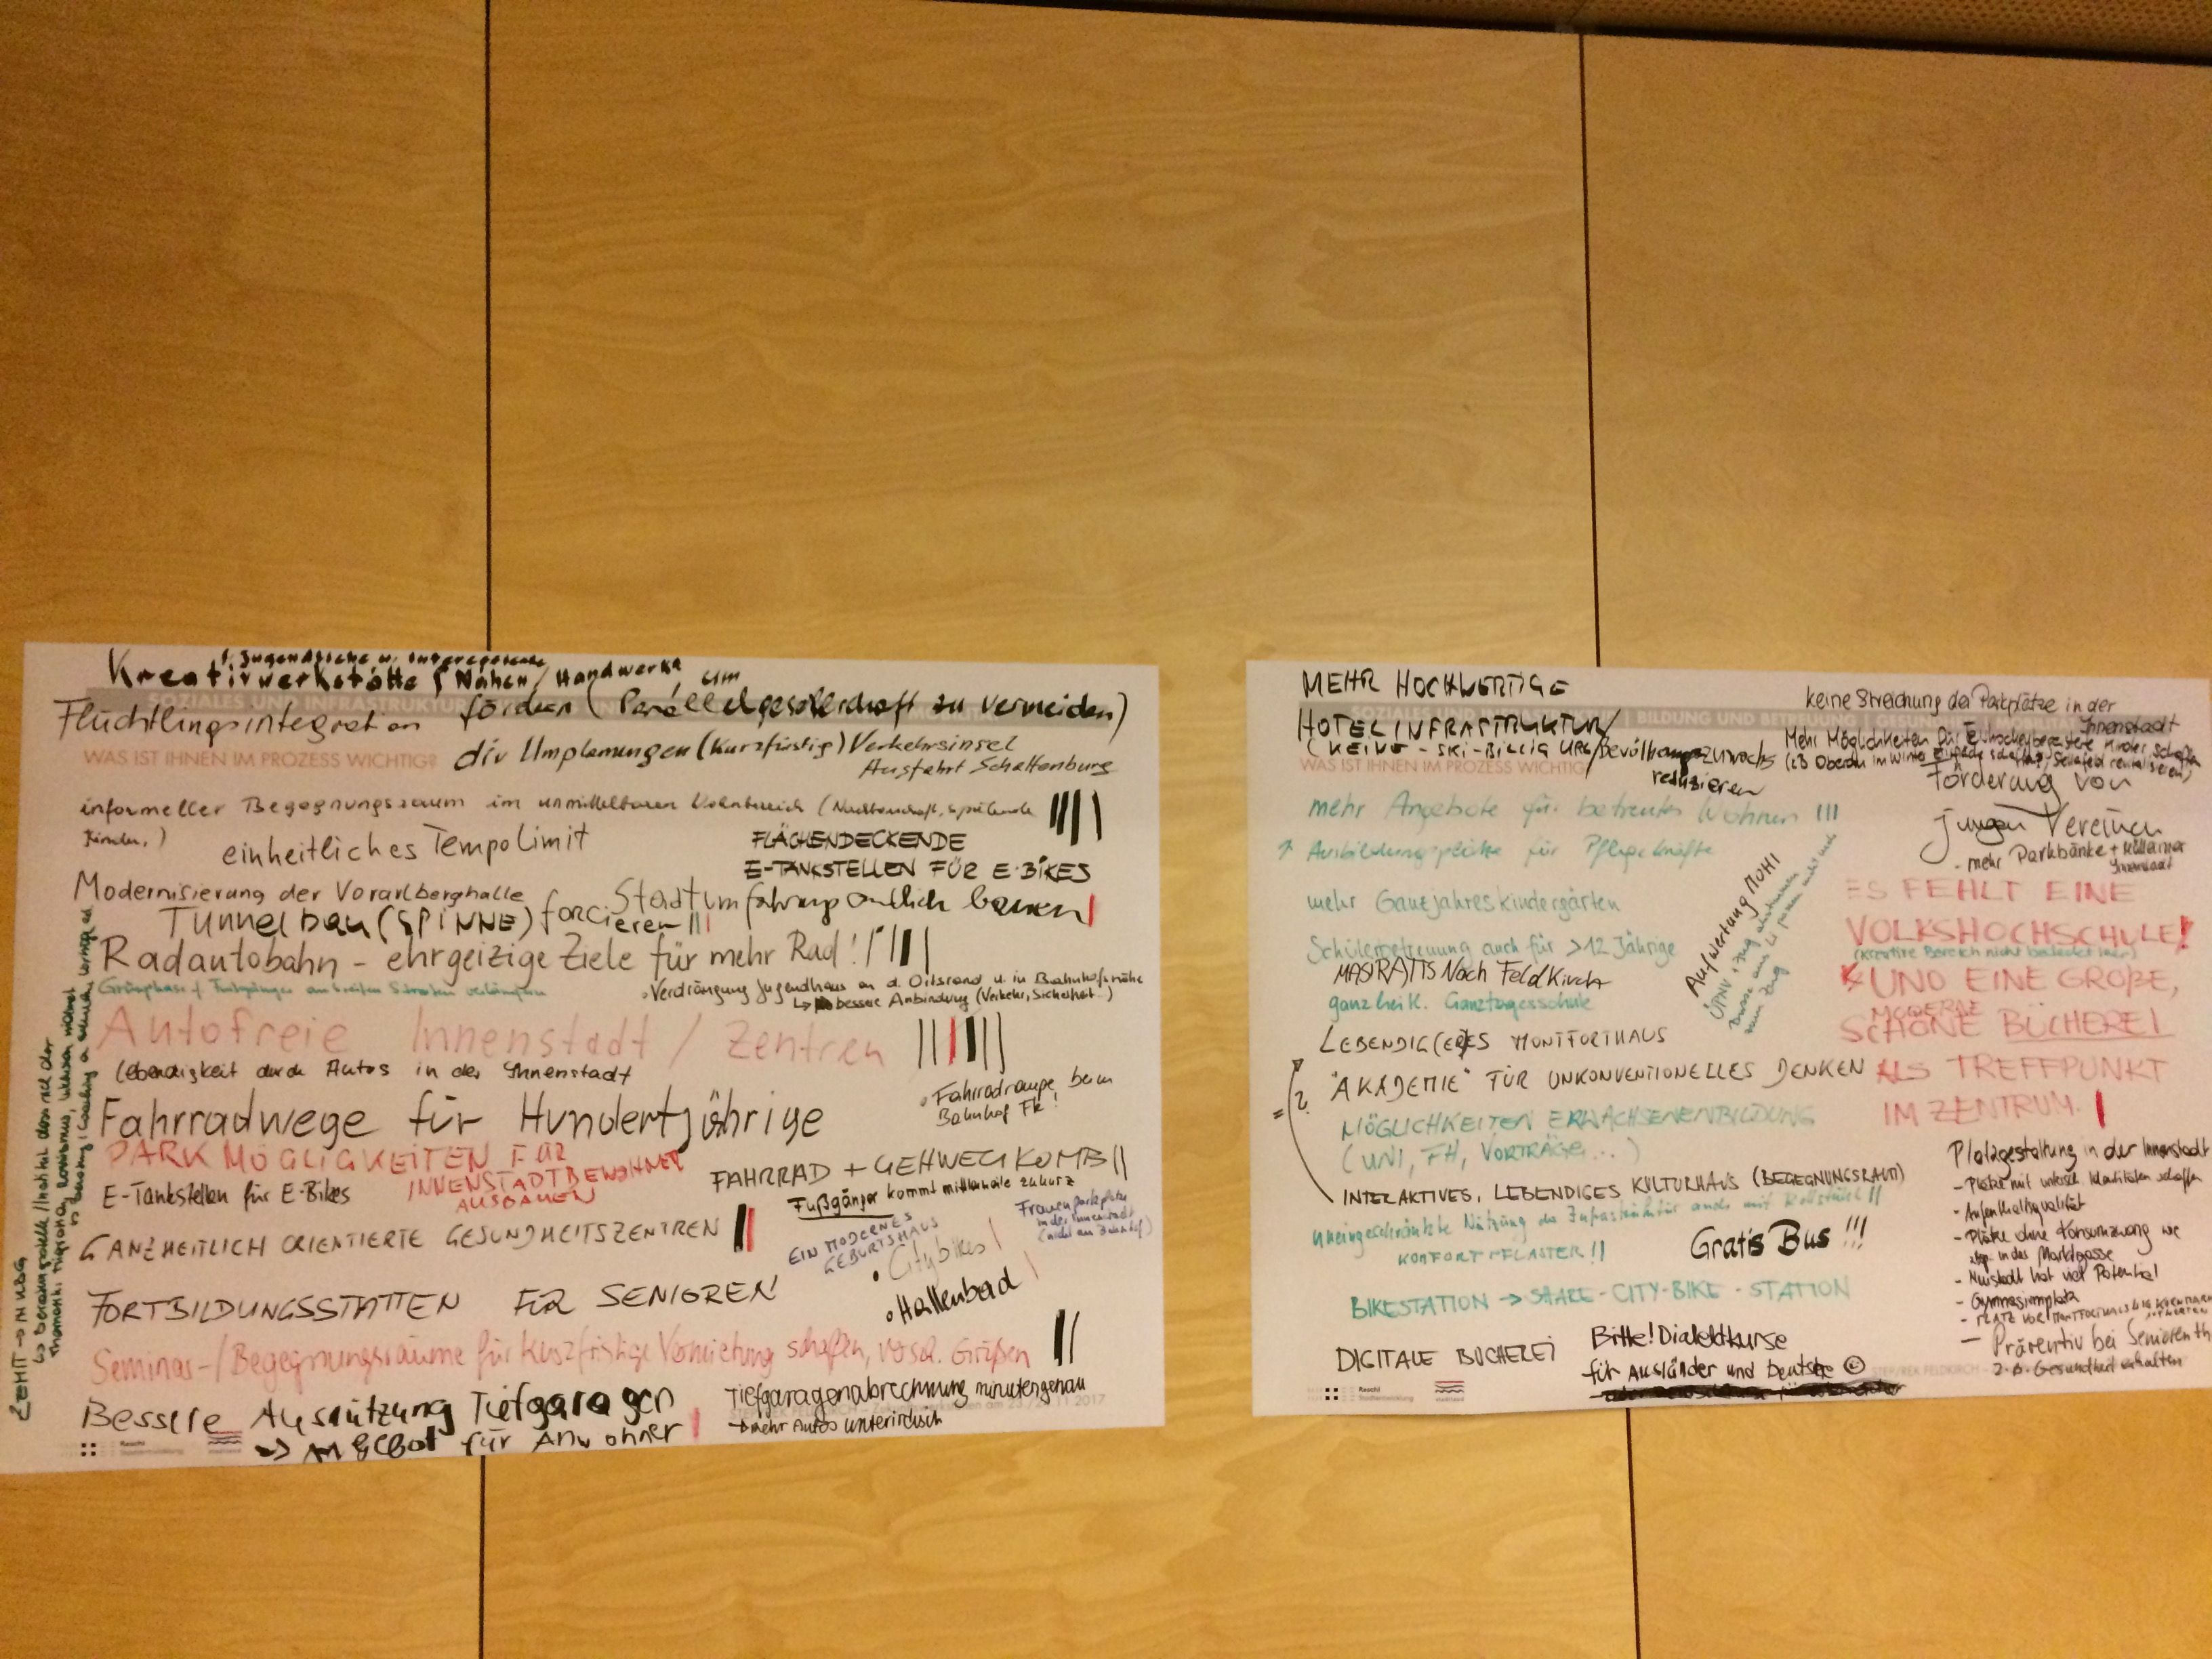 f. Jugendliche u.
Kreativwerkstätte / Nähen / Handwerk
um
Flüchtlingsintegration fördern (Parallelgesellschaft zu vermeiden)
SOZIALES UND INFRASTRUKTUR
WAS IST IHNEN IM PROZESS WICHTIG?
div Umplanungen (kurzfristig) Verkehrsinsel
Ausfahrt Schattenburg
informeller Begegnungsraum im unmittelbaren Wohnbereich (Nachbarschaft, spielende
Kinder, )
einheitliches TempoLimit
FLÄCHENDECKENDE
E-TANKSTELLEN FÜR E-BIKES
Modernisierung der Vorarlberghalle
Stadtumfahrung endlich bauen
Tunnelbau (SPINNE) forcieren
Radautobahn - ehrgeizige Ziele für mehr Rad!
Grünphase f. Fußgänger an breiten Strassen verlängern
Verdrängung Jugendhaus an d. Ortsrand u. in Bahnhofsnähe
↳ bessere Anbindung (Verkehr, Sicherheit..)
Autofreie Innenstadt / Zentren
Lebendigkeit durch Autos in der Innenstadt
• Fahrradrampe beim
Bahnhof Fk!
Fahrradwege für Hundertjährige
PARKMÖGLIGKEITEN FÜR
INNENSTADTBEWOHNER
AUSBAUEN
E-Tankstellen für E-Bikes
FAHRRAD + GEHWEG KOMBI
Fußgänger kommt mittlerweile zu kurz
GANZHEITLICH ORIENTIERTE GESUNDHEITSZENTREN
EIN MODERNES
GEBURTSHAUS
Frauenparkplätze
in der Innenstadt
(nicht am Bahnhof)
• Citybikes
• Hallenbad
FORTBILDUNGSSTÄTTEN FÜR SENIOREN
Seminar-/Begegnungsräume für kurzfristige Vermietung schaffen, versch. Größen
Bessere Ausnützung Tiefgaragen
→ Angebot für Anwohner
Tiefgaragenabrechnung minutengenau
→ mehr Autos unterirdisch
MEHR HOCHWERTIGE
HOTELINFRASTRUKTUR
(KEINE - SKI-BILLIG URL
Bevölkerungszuwachs
reduzieren
BILDUNG UND BETREUUNG
WAS IST IHNEN IM PROZESS WICHTIG
mehr Angebote für betreutes Wohnen !!!
↑ Ausbildungsplätze für Pflegekräfte
mehr Ganzjahreskindergärten
Schülerbetreuung auch für >12 Jährige
MAS
Nach Feldkirch
ganzheitl. Ganztagesschule
LEBENDIG(ER)ES MONTFORTHAUS
"AKADEMIE" FÜR UNKONVENTIONELLES DENKEN
MÖGLICHKEITEN ERWACHSENENBILDUNG
(UNI, FH, VORTRÄGE...)
INTERAKTIVES, LEBENDIGES KULTURHAUS (BEGEGNUNGSRAUM)
uneingeschränkte Nutzung der Infrastruktur auch mit Rollstuhl !!
KOMFORTPFLASTER!!
Gratis Bus !!!
BIKESTATION → SHARE-CITY-BIKE-STATION
DIGITALE BÜCHEREI
Bitte! Dialektkurse
für Ausländer und Deutsche ☺
Aufwertung MOHI
keine Streichung der Parkplätze in der
Innenstadt
Mehr Möglichkeiten für
Förderung von
jungen Vereinen
- mehr Parkbänke + Mülleimer
Innenstadt
ES FEHLT EINE
VOLKSHOCHSCHULE!
UND EINE GROßE,
MODERNE
SCHÖNE BÜCHEREI
ALS TREFFPUNKT
IM ZENTRUM.
Platzgestaltung in der Innenstadt
- Plätze mit untersch. Identitäten schaffen
- Aufenthaltsqualität
- Plätze ohne Konsumzwang wie
zb. in der Marktgasse
- Neustadt hat viel Potential
- Gymnasiumplatz
- PLATZ VOR MONTFORTHAUS
- Präventiv bei Senioren
z.B. Gesundheit erhalten